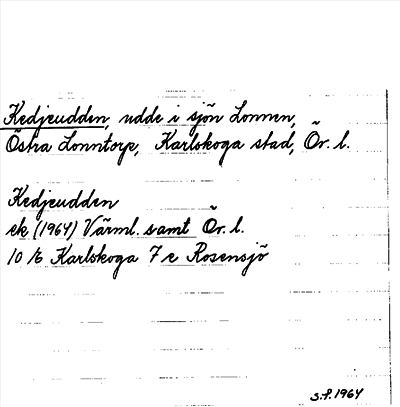 Kedjeudden, udde i sjön Lonnen,
Östra Lonntorp, Karlskoga stad, Ör. l.
Kedjeudden
ek (1964) Värml. samt Ör. l.
10 16 Karlskoga 7 e Rosensjö
S.F. 1964